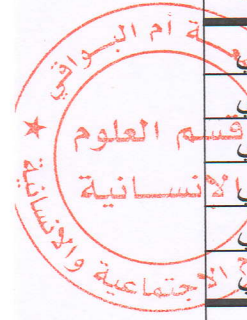 ـة أم البـواقي
قسم العلوم
الانسـانية
الاجتماعية والانسانية